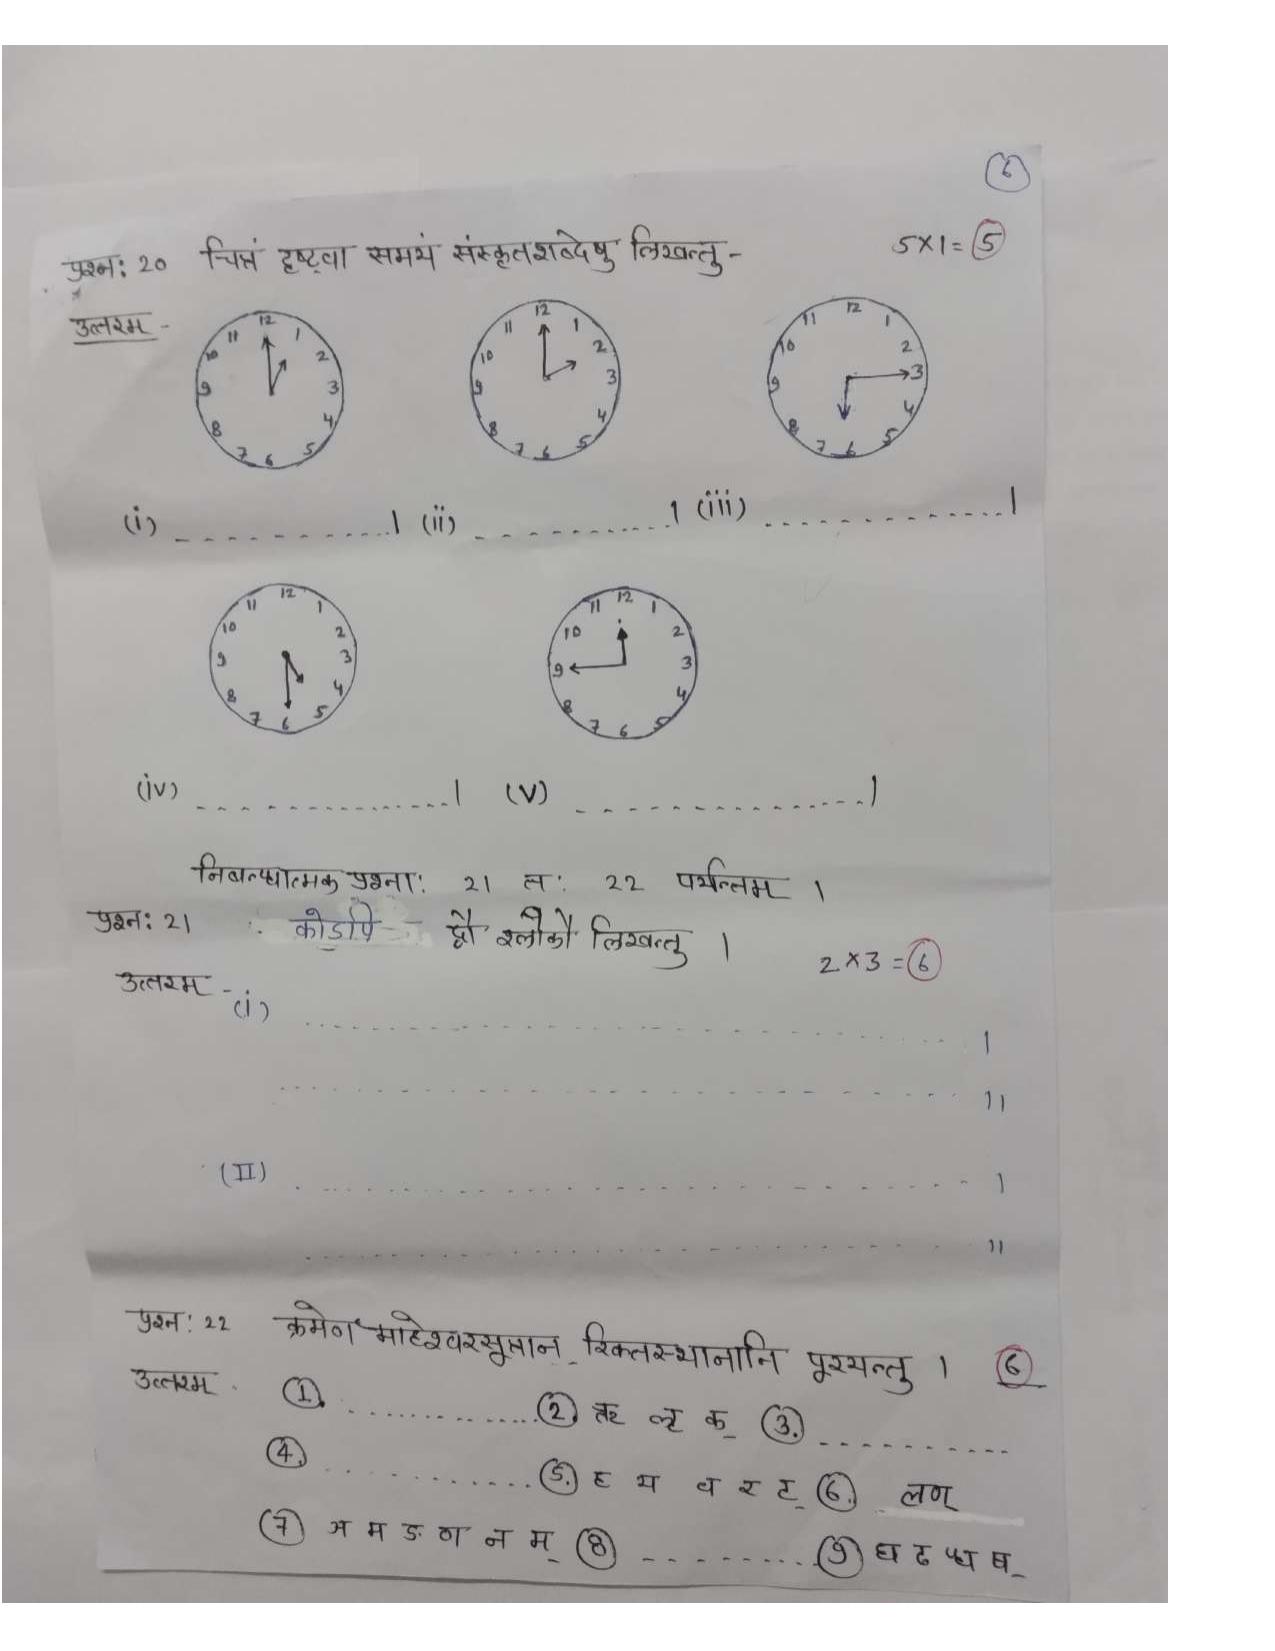 6
प्रश्न: 20 चित्रं दृष्ट्वा समयं संस्कृतशब्देषु लिखन्तु - 5×1=5
उत्तरम् -
12 1 2 3 4 5 6 7 8 9 10 11
12 1 2 3 4 5 6 7 8 9 10 11
12 1 2 3 4 5 6 7 8 9 10 11
(i) ...........। (ii) ...........। (iii) ..............।
12 1 2 3 4 5 6 7 8 9 10 11
12 1 2 3 4 5 6 7 8 9 10 11
(iv) ...............। (v) ................।
निबन्धात्मक प्रश्ना: 21 त: 22 पर्यन्तम् ।
प्रश्न: 21 कोऽपि द्वौ श्लोकौ लिखन्तु । 2×3=6
उत्तरम् -
(i) ..............................।
..............................॥
(II) ..............................।
..............................॥
प्रश्न: 22 क्रमेण माहेश्वरसूत्रान् रिक्तस्थानानि पूरयन्तु । 6
उत्तरम्
1. ............. 2. ऋ लृ क् 3. ..........
4. ............. 5. ह य व र ट् 6. लण्
7 ञ म ङ ण न म् 8 ........... 9 घ ढ ध ष्